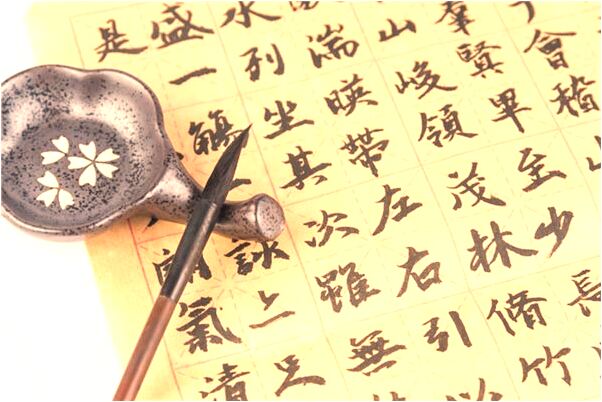 會稽
羣賢畢至少長
山峻領茂林脩竹
湍暎帶左右引
水列坐其次雖無
盛一觴詠上足
是氣清